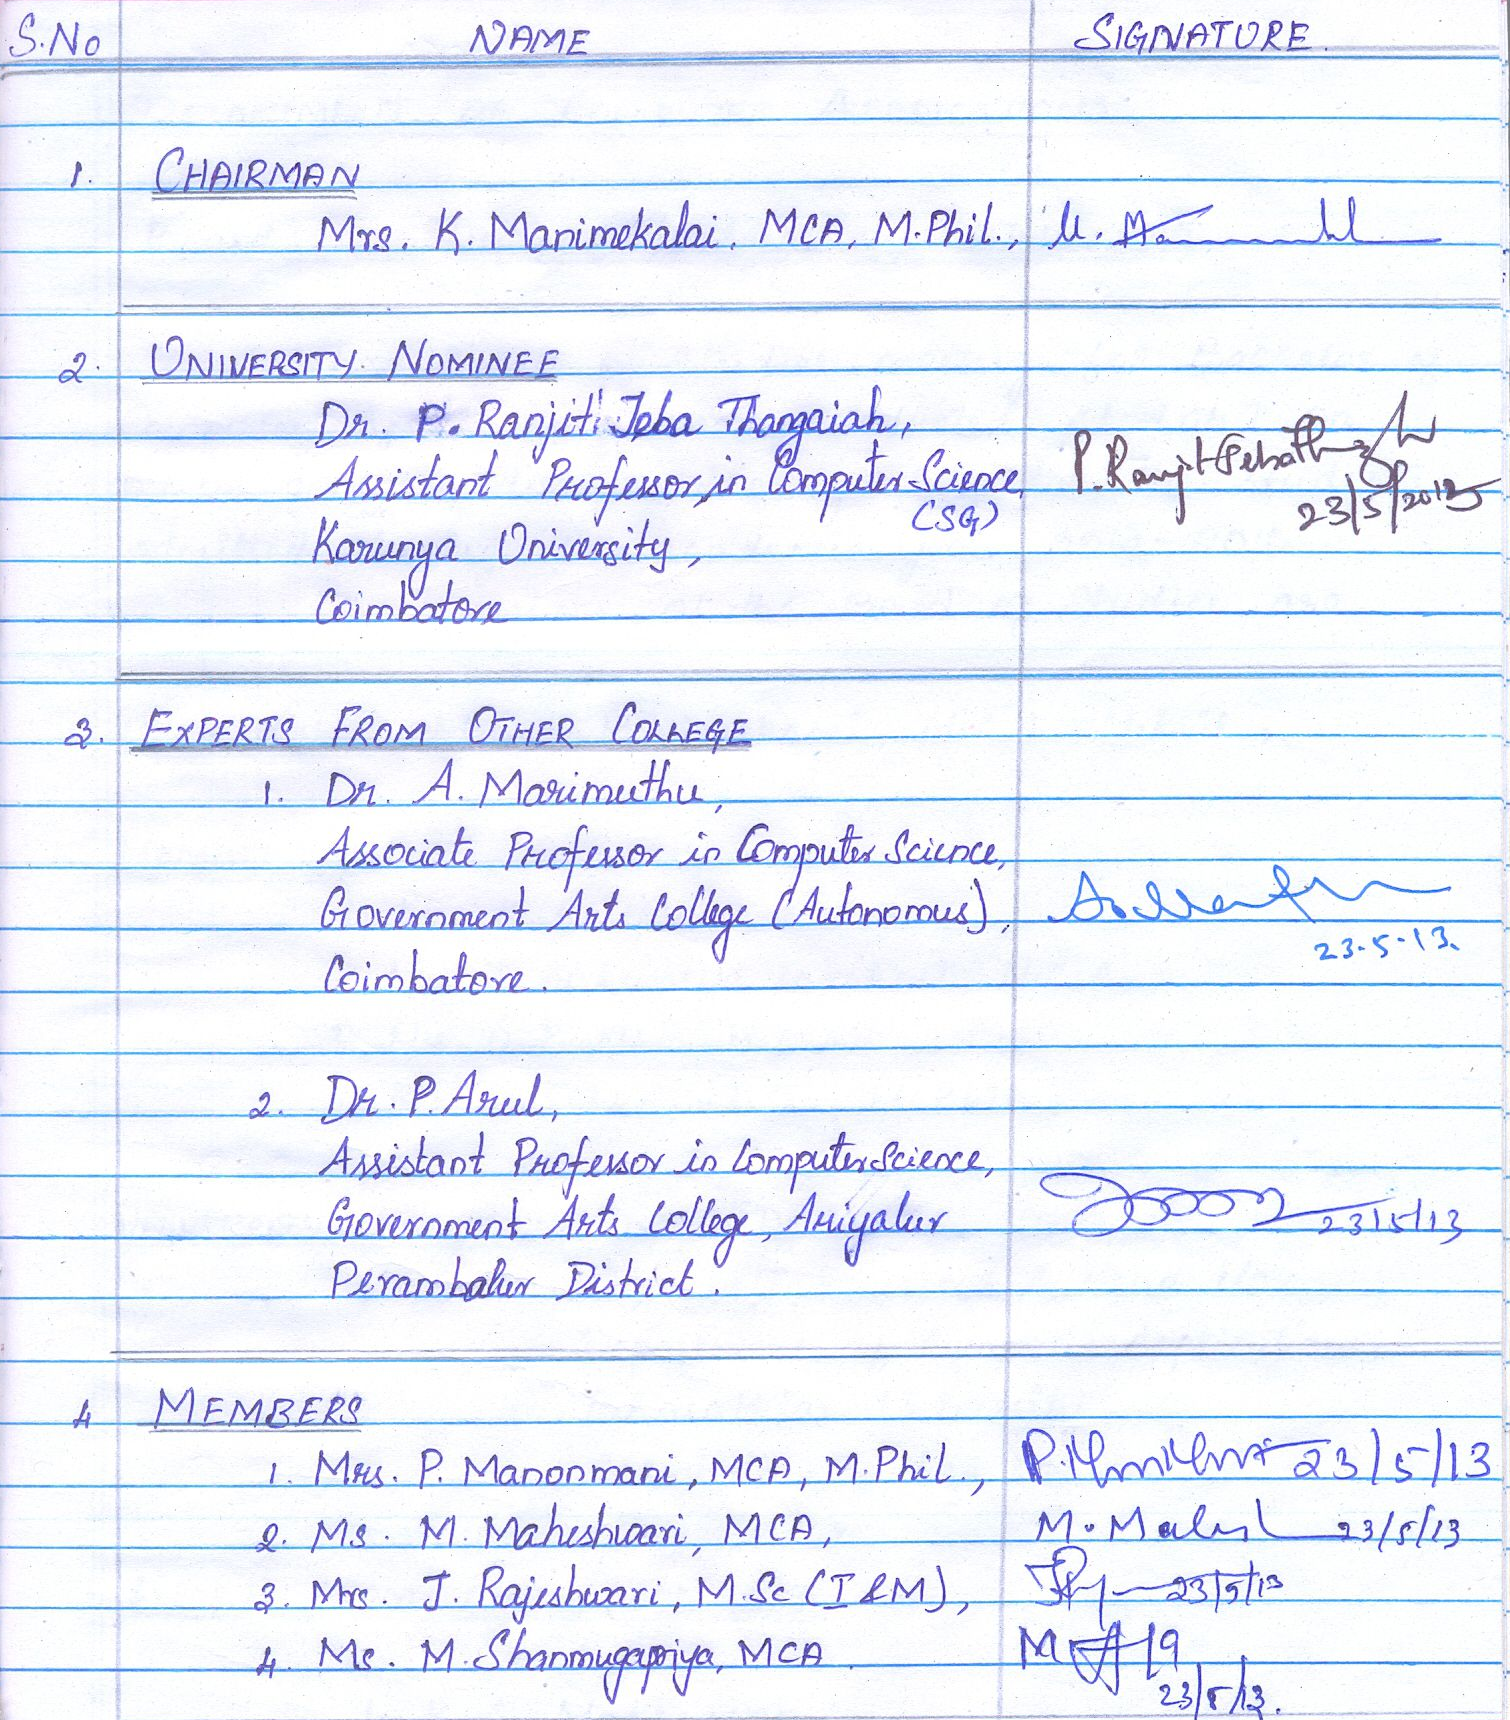 S.No NAME SIGNATURE.
1. CHAIRMAN
Mrs. K. Manimekalai, MCA, M.Phil.,
2. UNIVERSITY NOMINEE
Dr. P. Ranjit Jeba Thangaiah,
Assistant Professor in Computer Science,
(SG)
23/5/2013
Karunya University,
Coimbatore
3. EXPERTS FROM OTHER COLLEGE
1. Dr. A. Marimuthu,
Associate Professor in Computer Science,
Government Arts College (Autonomus),
23.5.13.
Coimbatore.
2. Dr. P. Arul,
Assistant Professor in Computer Science,
Government Arts College, Ariyalur 23/5/13
Perambalur District.
4 MEMBERS
1. Mrs. P. Manonmani, MCA, M.Phil., 23/5/13
2. Ms. M. Maheshwari, MCA, 23/5/13
3. Mrs. J. Rajeshwari, M.Sc (I&M), 23/5/13
4. Ms. M. Shanmugapriya, MCA
23/5/13.